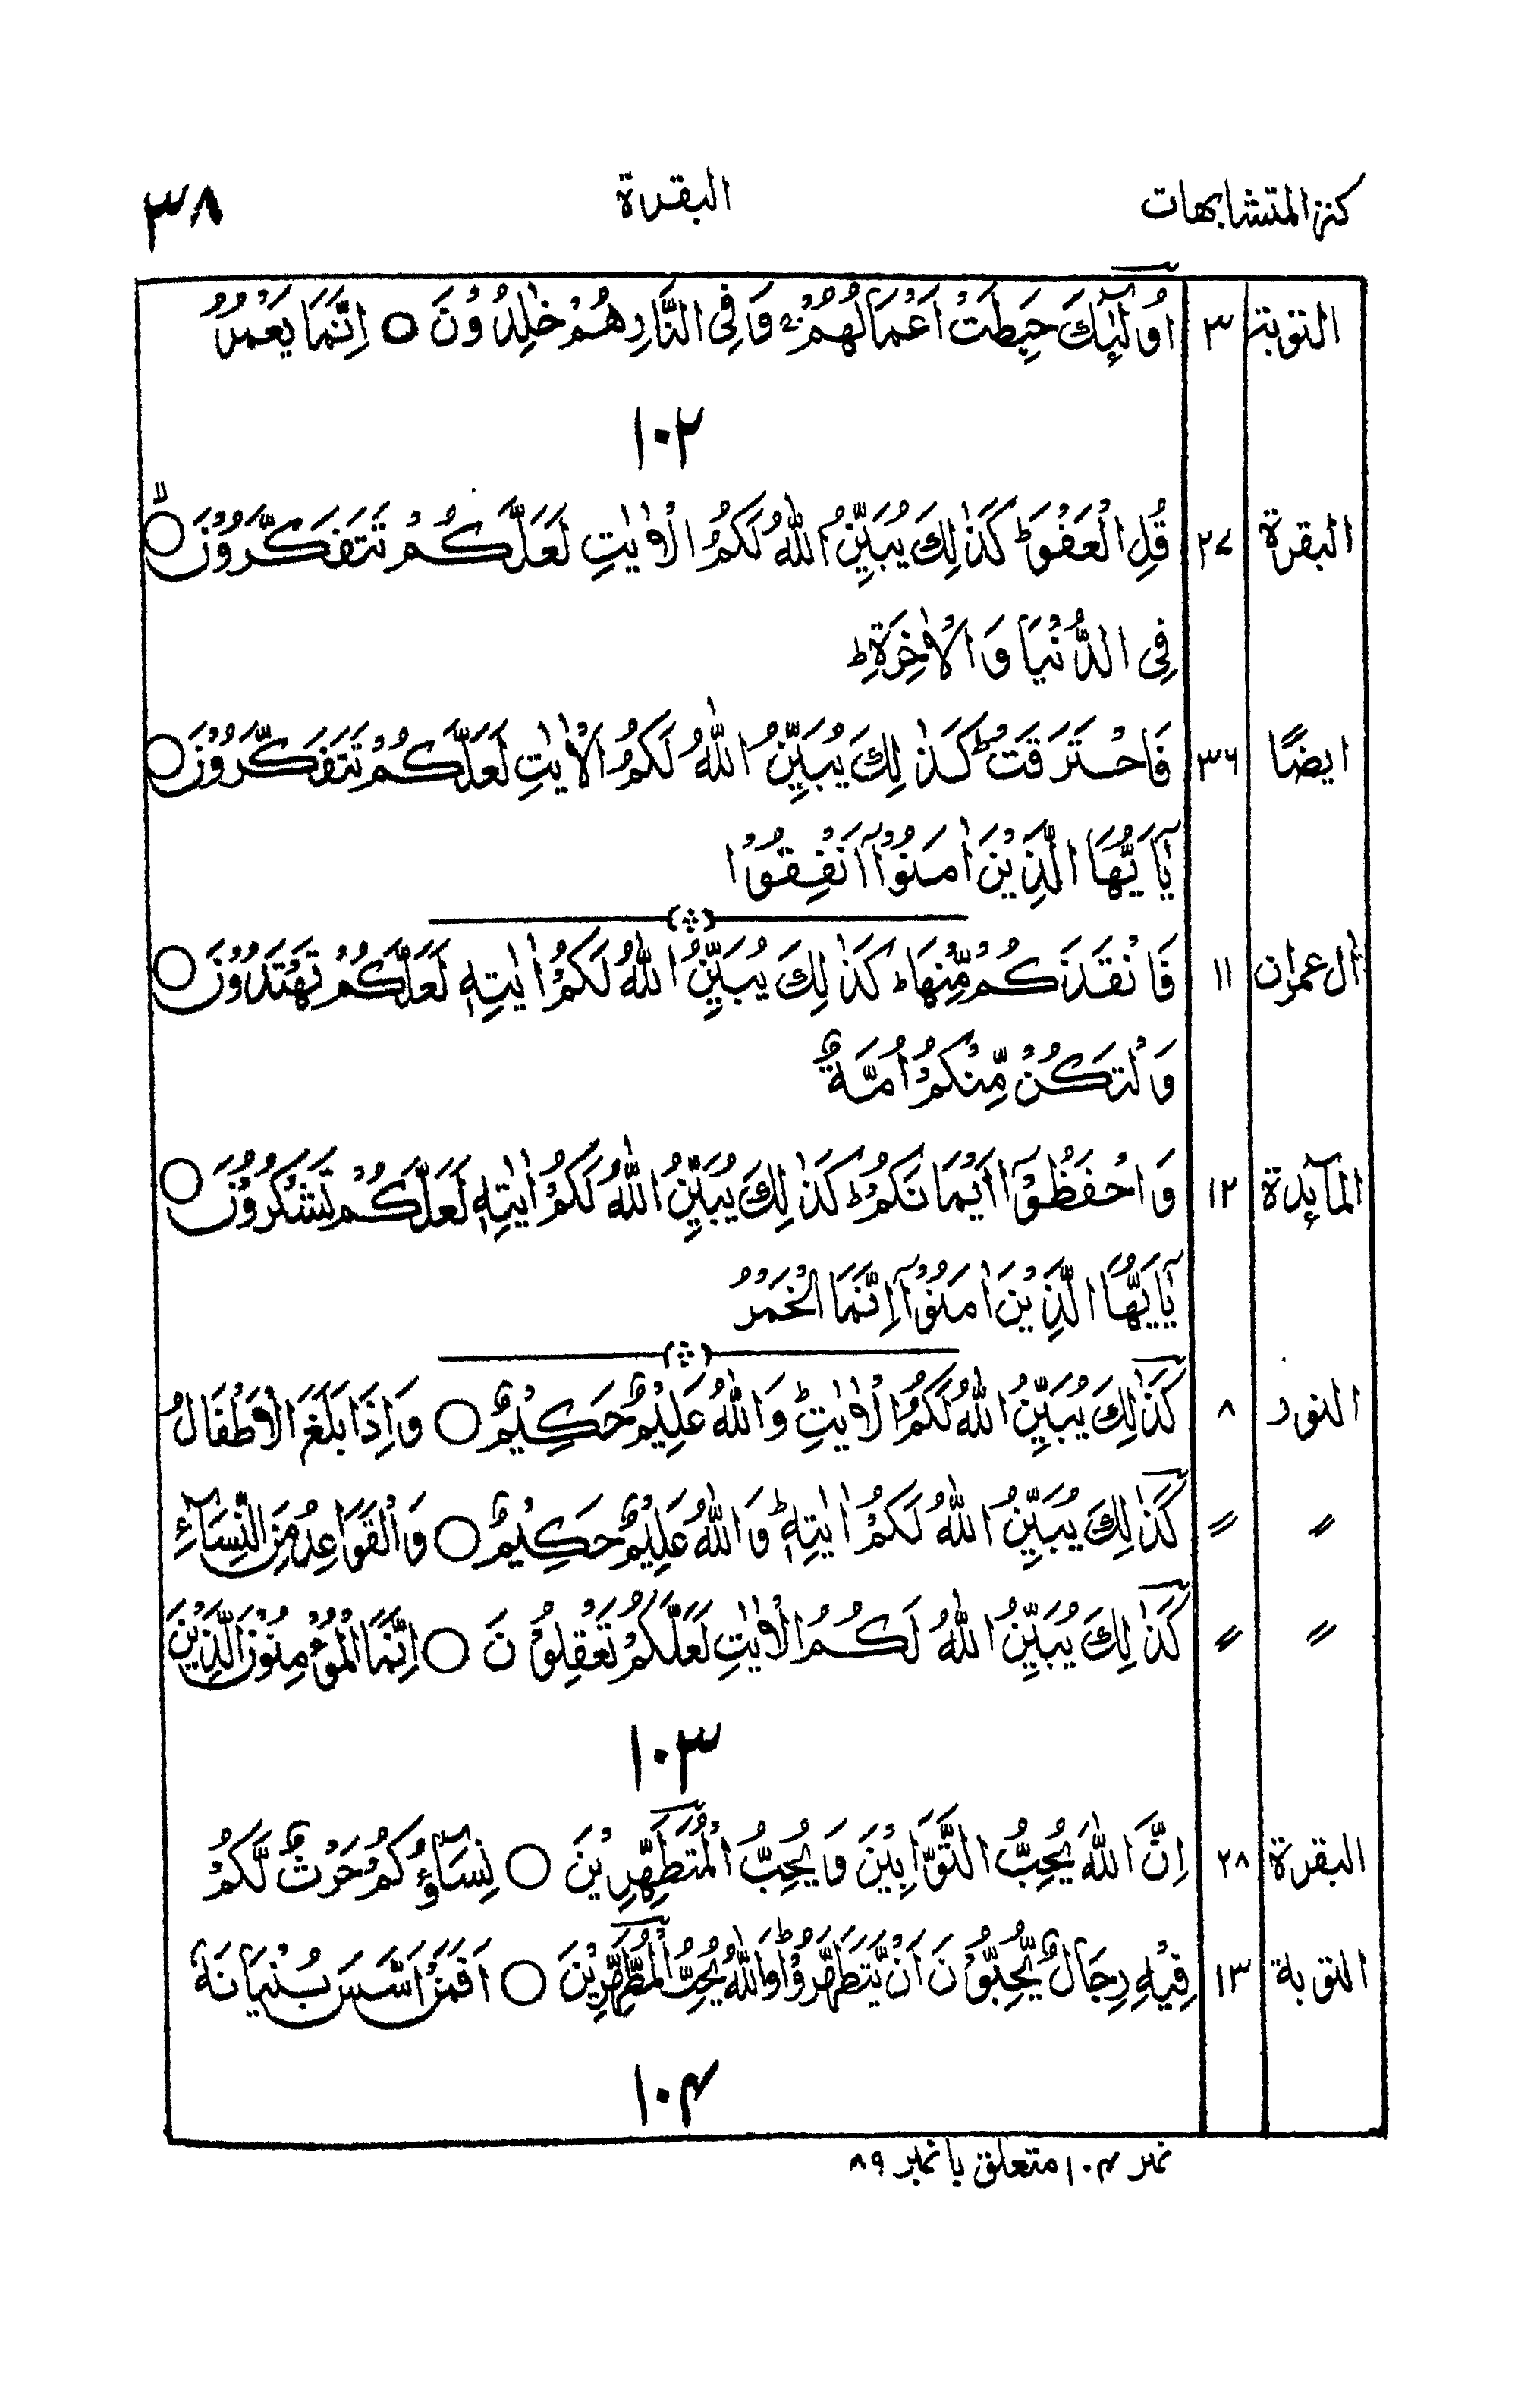 كنز المتشابهات البقرة ٣٨
التوبة ٣ اُولٰٓئِكَ حَبِطَتْ اَعْمَالُهُمْ ۖۚ وَفِى النَّارِ هُمْ خٰلِدُوْنَ ○ اِنَّمَا يَعْمُرُ
١٠٢
البقرة ٢٧ قُلِ الْعَفْوَ ؕ كَذٰلِكَ يُبَيِّنُ اللّٰهُ لَكُمُ الْاٰيٰتِ لَعَلَّكُمْ تَتَفَكَّرُوْنَ ○ ۙ
فِى الدُّنْيَا وَالْاٰخِرَةِ ؕ
ايضًا ٣٦ فَاحْتَرَقَتْ ؕ كَذٰلِكَ يُبَيِّنُ اللّٰهُ لَكُمُ الْاٰيٰتِ لَعَلَّكُمْ تَتَفَكَّرُوْنَ ○
يٰٓاَيُّهَا الَّذِيْنَ اٰمَنُوْٓا اَنْفِقُوْا
اٰل عمران ١١ فَاَنْقَذَكُمْ مِّنْهَا ؕ كَذٰلِكَ يُبَيِّنُ اللّٰهُ لَكُمْ اٰيٰتِهٖ لَعَلَّكُمْ تَهْتَدُوْنَ ○
وَلْتَكُنْ مِّنْكُمْ اُمَّةٌ
المآئدة ١٢ وَاحْفَظُوْٓا اَيْمَانَكُمْ ؕ كَذٰلِكَ يُبَيِّنُ اللّٰهُ لَكُمْ اٰيٰتِهٖ لَعَلَّكُمْ تَشْكُرُوْنَ ○
يٰٓاَيُّهَا الَّذِيْنَ اٰمَنُوْٓا اِنَّمَا الْخَمْرُ
النور ٨ كَذٰلِكَ يُبَيِّنُ اللّٰهُ لَكُمُ الْاٰيٰتِ ؕ وَاللّٰهُ عَلِيْمٌ حَكِيْمٌ ○ وَاِذَا بَلَغَ الْاَطْفَالُ
〃 〃 كَذٰلِكَ يُبَيِّنُ اللّٰهُ لَكُمْ اٰيٰتِهٖ ؕ وَاللّٰهُ عَلِيْمٌ حَكِيْمٌ ○ وَالْقَوَاعِدُ مِنَ النِّسَآءِ
〃 〃 كَذٰلِكَ يُبَيِّنُ اللّٰهُ لَكُمُ الْاٰيٰتِ لَعَلَّكُمْ تَعْقِلُوْنَ ○ اِنَّمَا الْمُؤْمِنُوْنَ الَّذِيْنَ
١٠٣
البقرة ٢٨ اِنَّ اللّٰهَ يُحِبُّ التَّوَّابِيْنَ وَيُحِبُّ الْمُتَطَهِّرِيْنَ ○ نِسَآؤُكُمْ حَرْثٌ لَّكُمْ
التوبة ١٣ فِيْهِ رِجَالٌ يُّحِبُّوْنَ اَنْ يَّتَطَهَّرُوْا ؕ وَاللّٰهُ يُحِبُّ الْمُطَّهِّرِيْنَ ○ اَفَمَنْ اَسَّسَ بُنْيَانَهٗ
١٠٤
نمبر ١٠٤ متعلق با نمبر ٨٩